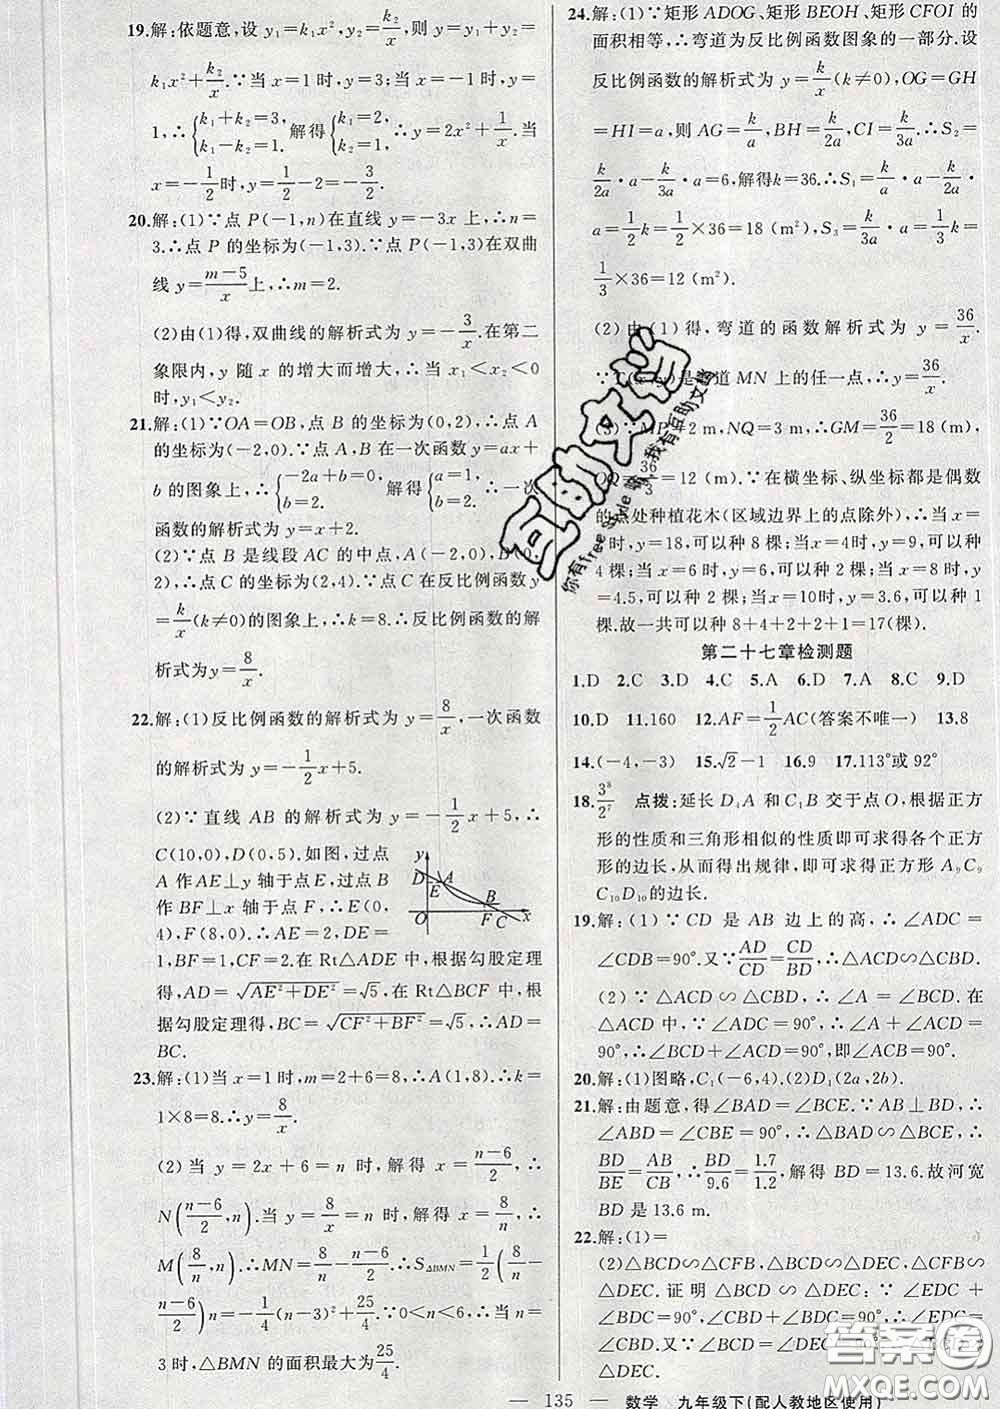 19.解:依题意,设 y₁=k₁x²,y₂=k₂/x,则 y=y₁+y₂=
k₁x²+k₂/x.∵当 x=1 时,y=3;当 x=−1 时,y=
1,∴{k₁+k₂=3, k₁−k₂=1. 解得{k₁=2, k₂=1. ∴y=2x²+1/x.当
x=−1/2时,y=1/2−2=−3/2.
20.解:(1)∵点 P(−1,n)在直线 y=−3x 上,∴n=
3.∴点 P 的坐标为(−1,3).∵点 P(−1,3)在双曲
线 y=(m−5)/x上,∴m=2.
(2)由(1)得,双曲线的解析式为 y=−3/x.在第二
象限内,y 随 x 的增大而增大,∴当 x₁<x₂<0
时,y₁<y₂.
21.解:(1)∵OA=OB,点 B 的坐标为(0,2),∴点 A
的坐标为(−2,0).∵点 A,B 在一次函数 y=ax+
b 的图象上,∴{−2a+b=0, b=2. 解得{a=1, b=2. ∴一次
函数的解析式为 y=x+2.
(2)∵点 B 是线段 AC 的中点,A(−2,0),B(0,
2),∴点 C 的坐标为(2,4).∵点 C 在反比例函数 y
=k/x(k≠0)的图象上,∴k=8.∴反比例函数的解
析式为 y=8/x.
22.解:(1)反比例函数的解析式为 y=8/x,一次函数
的解析式为 y=−1/2x+5.
(2)∵直线 AB 的解析式为 y=−1/2x+5,∴
C(10,0),D(0,5).如图,过点
A 作 AE⊥y 轴于点 E,过点 B
作 BF⊥x 轴于点 F,∴E(0,
4),F(8,0).∴AE=2,DE=
1,BF=1,CF=2.在 Rt△ADE 中,根据勾股定理
得,AD=√(AE²+DE²)=√5,在 Rt△BCF 中,根
据勾股定理得,BC=√(CF²+BF²)=√5,∴AD=
BC.
y
D
A
E
B
O
F
C
x
23.解:(1)当 x=1 时,m=2+6=8,∴A(1,8).∴k=
1×8=8.∴y=8/x.
(2)当 y=2x+6=n 时,解得 x=(n−6)/2,∴
N((n−6)/2,n).当 y=8/x=n 时,解得 x=8/n,∴
M(8/n,n).∴MN=8/n−(n−6)/2.∴S△BMN=1/2(8/n−
(n−6)/2)n=−1/4(n−3)²+25/4.∵0<n<6,∴当 n=
3 时,△BMN 的面积最大为25/4.
24.解:(1)∵矩形 ADOG、矩形 BEOH、矩形 CFOI 的
面积相等,∴弯道为反比例函数图象的一部分.设
反比例函数的解析式为 y=k/x(k≠0),OG=GH
=HI=a,则 AG=k/a,BH=k/2a,CI=k/3a.∴S₂=
k/2a·a−k/3a·a=6,解得k=36.∴S₁=k/a·a−k/2a·
a=1/2k=1/2×36=18 (m²),S₃=k/3a·a=1/3k=
1/3×36=12 (m²).
(2)由(1)得,弯道的函数解析式为 y=36/x.
道 MN 上的任一点,∴y=36/x.
MP=2 m,NQ=3 m,∴GM=36/2=18 (m),
OQ=36/3=12 (m).∵在横坐标、纵坐标都是偶数
的点处种植花木(区域边界上的点除外),∴当 x=
时,y=18,可以种 8 棵;当 x=4时,y=9,可以种
4 棵;当 x=6 时,y=6,可以种 2 棵;当 x=8 时,y
=4.5,可以种 2 棵;当 x=10时,y=3.6,可以种 1
棵.故一共可以种 8+4+2+2+1=17(棵).
第二十七章检测题
1.D 2.C 3.D 4.C 5.A 6.D 7.A 8.C 9.D
10.D 11.160 12.AF=1/2AC(答案不唯一) 13.8
14.(−4,−3) 15.√2−1 16.9 17.113°或 92°
18.3⁸/2⁷ 点拨:延长 D₁A 和 C₁B 交于点 O,根据正方
形的性质和三角形相似的性质即可求得各个正方
形的边长,从而得出规律,即可求得正方形 A₉C₉
C₁₀D₁₀的边长.
19.解:(1)∵CD 是 AB 边上的高,∴∠ADC=
∠CDB=90°.又∵AD/CD=CD/BD,∴△ACD∽△CBD.
(2)∵△ACD∽△CBD,∴∠A=∠BCD.在
△ACD 中,∵∠ADC=90°,∴∠A+∠ACD=
90°,∴∠BCD+∠ACD=90°,即∠ACB=90°.
20.解:(1)图略,C₁(−6,4).(2)D₁(2a,2b).
21.解:由题意,得∠BAD=∠BCE.∵AB⊥BD,∴
∠ABD=∠CBE=90°,∴△BAD∽△BCE,∴
BD/BE=AB/CB,∴BD/9.6=1.7/1.2,解得 BD=13.6.故河宽
BD 是 13.6 m.
22.解:(1)=
(2)△BCD∽△CFB∽△DEC,△CFB∽
△DEC.证明△BCD∽△DEC:∵∠EDC+
∠BDC=90°,∠CBD+∠BDC=90°,∴∠EDC=
∠CBD.又∵∠BCD=∠DEC=90°,∴△BCD∽
△DEC.
— 135 — 数学 九年级下(配人教地区使用)
互助文档
你有freestyle嘛,我有互助文档
答案圈
MXQE.COM